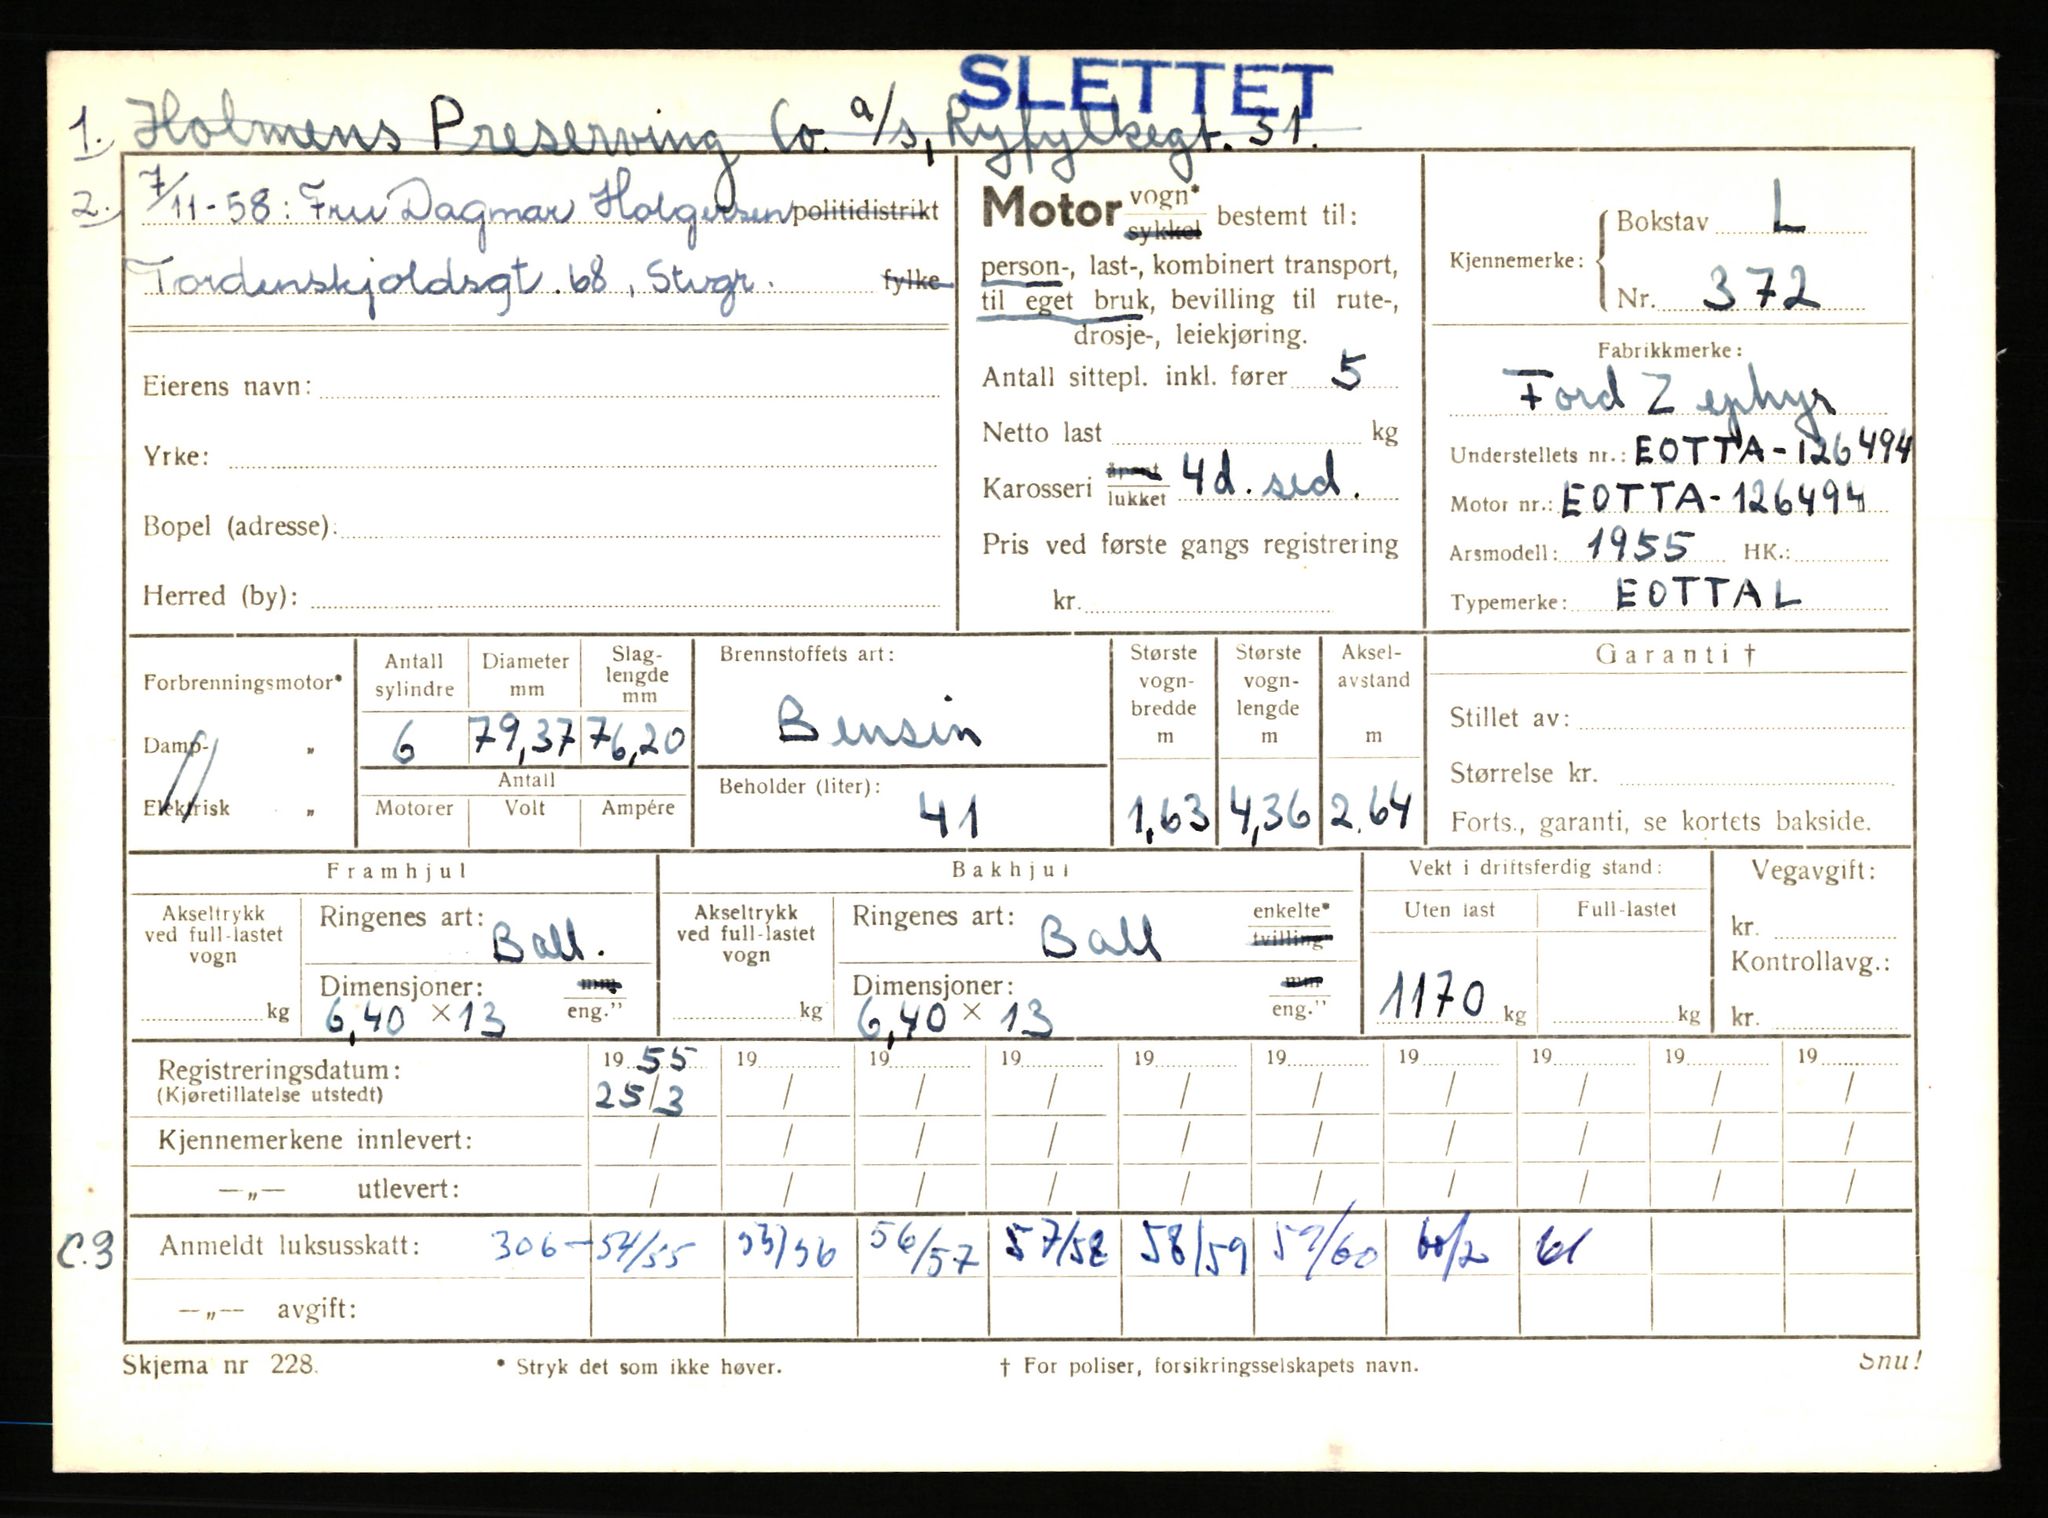 SLETTET
1. Holmens Preserving Co. a/s, Ryfylkegt. 31.
2. 7/11-58: Fru Dagmar Holgersen politidistrikt
Tordenskjoldsgt. 68, Stvgr. fylke
Eierens navn:
Yrke:
Bopel (adresse):
Herred (by):
Motor vogn* sykkel bestemt til:
person-, last-, kombinert transport,
til eget bruk, bevilling til rute-,
drosje-, leiekjøring.
Antall sittepl. inkl. fører 5
Netto last kg
Karosseri åpent lukket 4d. sed.
Pris ved første gangs registrering
kr.
Kjennemerke: Bokstav L
Nr. 372
Fabrikkmerke:
Ford Zephyr
Understellets nr.: EOTTA-126494
Motor nr.: EOTTA-126494
Arsmodell: 1955 HK.:
Typemerke: EOTTAL
Forbrenningsmotor*
Damp- "
Elektrisk "
Antall sylindre
6
Diameter mm
79,37
Slag-lengde mm
76,20
Antall
Motorer Volt Ampére
Brennstoffets art:
Bensin
Beholder (liter):
41
Største vogn-bredde m
1,63
Største vogn-lengde m
4,36
Aksel-avstand m
2.64
Garanti †
Stillet av:
Størrelse kr.
Forts., garanti, se kortets bakside.
Framhjul
Akseltrykk ved full-lastet vogn
kg
Ringenes art:
Ball.
Dimensjoner: mm
6,40 × 13 eng."
Bakhjul
Akseltrykk ved full-lastet vogn
kg
Ringenes art: enkelte* tvilling
Ball
Dimensjoner: mm
6,40 × 13 eng."
Vekt i driftsferdig stand:
Uten last Full-lastet
1170 kg kg
Vegavgift:
kr.
Kontrollavg.:
kr.
Registreringsdatum: 1955 19 19 19 19 19 19 19 19 19
(Kjøretillatelse utstedt) 25/3 / / / / / / / / /
Kjennemerkene innlevert: / / / / / / / / / /
—„— utlevert: / / / / / / / / / /
C.3 Anmeldt luksusskatt: 306 - 54/55 55/56 56/57 57/58 58/59 59/60 60/2 61
—„— avgift:
Skjema nr 228. * Stryk det som ikke høver. † For poliser, forsikringsselskapets navn. Snu!